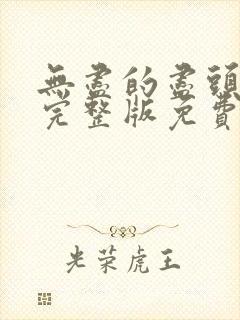 無盡的盡頭
完整版免費
光荣虎王